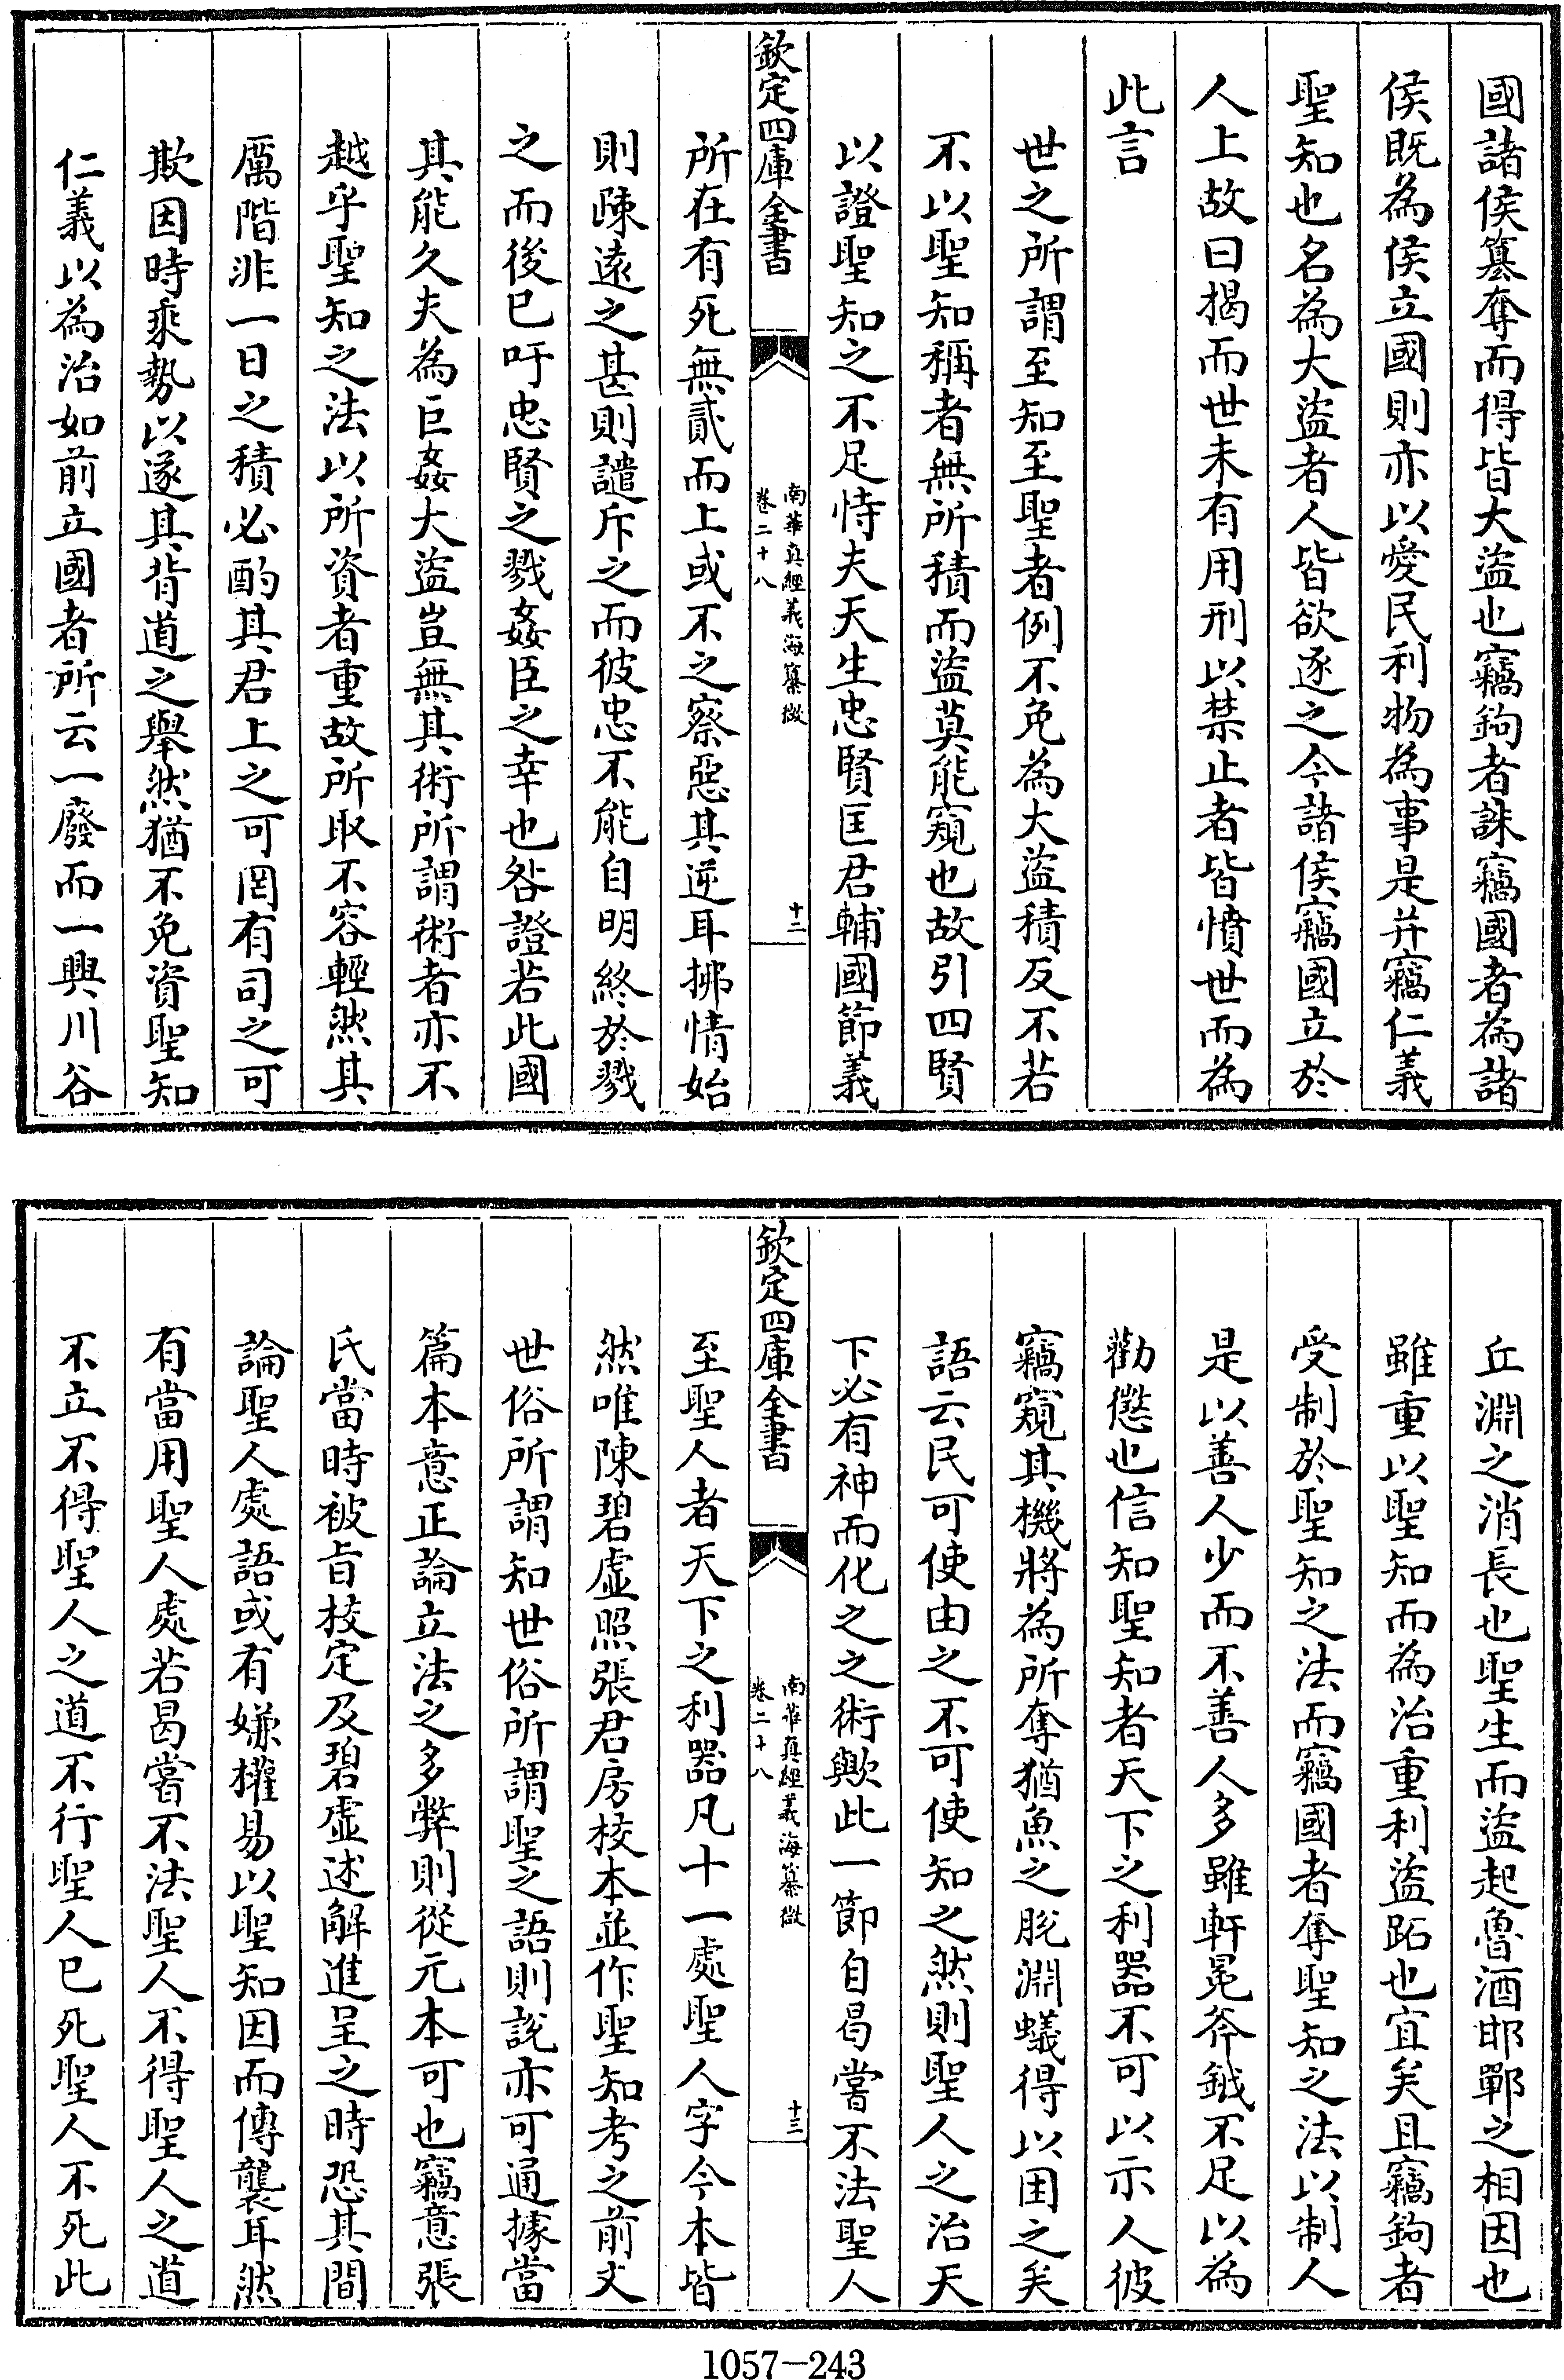 國諸侯簒奪而得皆大盜也竊鉤者誅竊國者為諸
侯既為侯立國則亦以愛民利物為事是并竊仁義
聖知也名為大盜者人皆欲逐之今諸侯竊國立於
人上故曰揭而世未有用刑以禁止者皆憤世而為
此言
世之所謂至知至聖者例不免為大盜積反不若
不以聖知稱者無所積而盜莫能窺也故引四賢
以證聖知之不足恃夫天生忠賢匡君輔國節義
欽定四庫全書
南華真經義海纂微
卷二十八
十二
所在有死無貳而上或不之察惡其逆耳拂情始
則疎遠之甚則譴斥之而彼忠不能自明終於戮
之而後已吁忠賢之戮姦臣之幸也咎證若此國
其能久夫為巨姦大盜豈無其術所謂術者亦不
越乎聖知之法以所資者重故所取不容輕然其
厲階非一日之積必酌其君上之可罔有司之可
欺因時乘勢以遂其背道之舉然猶不免資聖知
仁義以為治如前立國者所云一廢而一興川谷
丘淵之消長也聖生而盜起魯酒邯鄲之相因也
雖重以聖知而為治重利盜跖也宜矣且竊鉤者
受制於聖知之法而竊國者奪聖知之法以制人
是以善人少而不善人多雖軒冕斧鉞不足以為
勸懲也信知聖知者天下之利器不可以示人彼
竊窺其機將為所奪猶魚之脫淵蟻得以困之矣
語云民可使由之不可使知之然則聖人之治天
下必有神而化之之術歟此一節自曷嘗不法聖人
欽定四庫全書
南華真經義海纂微
卷二十八
十三
至聖人者天下之利器凡十一處聖人字今本皆
然唯陳碧虛照張君房校本並作聖知考之前文
世俗所謂知世俗所謂聖之語則說亦可通據當
篇本意正論立法之多弊則從元本可也竊意張
氏當時被旨校定及碧虛述解進呈之時恐其間
論聖人處語或有嫌權易以聖知因而傳襲耳然
有當用聖人處若曷嘗不法聖人不得聖人之道
不立不得聖人之道不行聖人已死聖人不死此
1057-243